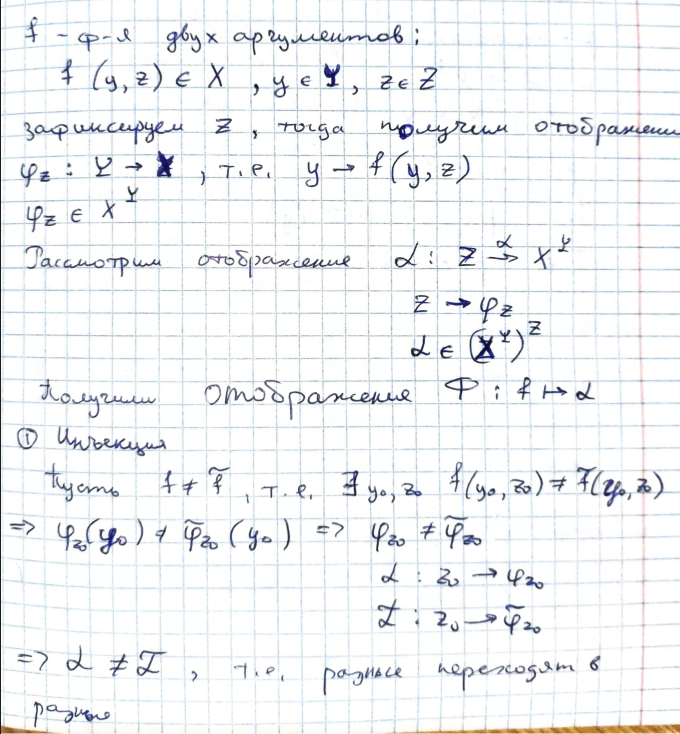 f - ф-я двух аргументов:
f (y, z) ∈ X , y ∈ Y, z ∈ Z
зафиксируем z, тогда получим отображени
φ_z : Y → X , т.е. y → f(y, z)
φ_z ∈ X^Y
Рассмотрим отображение α : Z →^α X^Y
z → φ_z
α ∈ (X^Y)^Z
Получили отображение Ф : f ↦ α
① Инъекция
Пусть f ≠ f̃ , т.е. ∃ y₀, z₀ f(y₀, z₀) ≠ f̃(y₀, z₀)
=> φ_z₀(y₀) ≠ φ̃_z₀(y₀) => φ_z₀ ≠ φ̃_z₀
α : z₀ → φ_z₀
α̃ : z₀ → φ̃_z₀
=> α ≠ α̃ , т.е. разные переходят в
разные